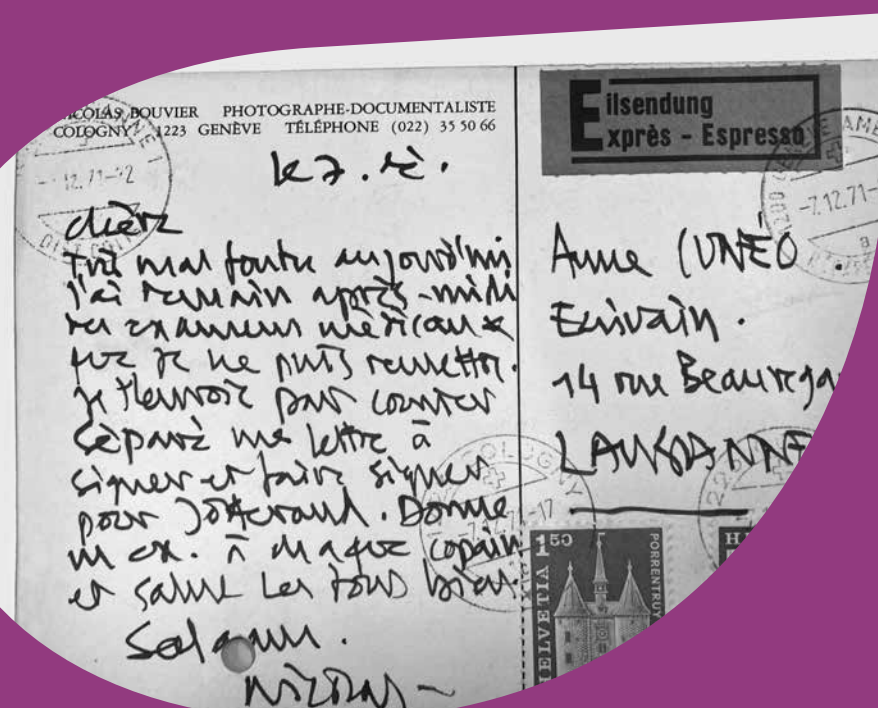 NICOLAS BOUVIER PHOTOGRAPHE-DOCUMENTALISTE
COLOGNY 1223 GENÈVE TÉLÉPHONE (022) 35 50 66
le 7. dè.
chère
Très mal foutu aujourd'hui
j'ai demain après-midi
des examens médicaux
que je ne puis remettre.
je t'envoie par courrier
séparé une lettre à
signer et faire signer
pour Jotterand. Donne
un ex. à chaque copain
et salue les tous bien.
Salaam.
Nicolas
Eilsendung
Exprès - Espresso
-7.12.71-
Anne CUNÉO.
Ecrivain.
14 rue Beaurega
LAUSANNE
COLOGNY
150
HELVETIA
PORRENTRUY